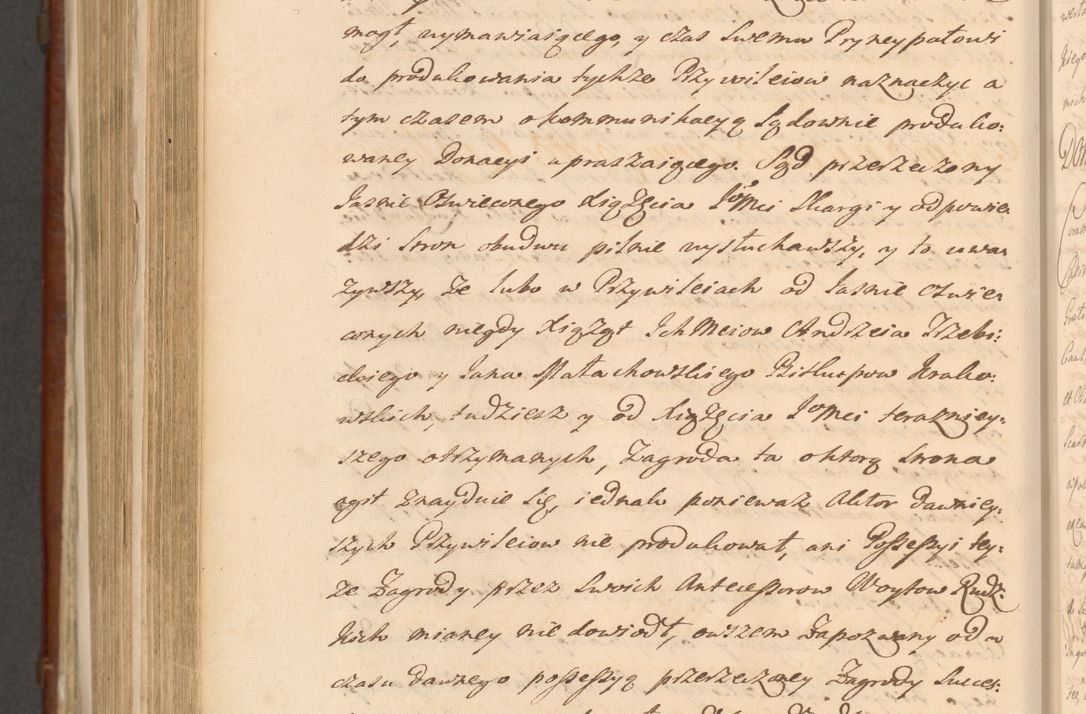 mogł, wymawiaiącego, y czas swemu Pryncypałowi
do produkowania tychże Przywileiow naznaczyc a
tym czasem o kommunikacyą Sądownie produko:
waney Donacyi upraszaiącego. Sąd przerzeczony
Jasnie Oswieconego Xiążęcia Jomci Skargi y odpowie
dzi stron obudwu pilnie wysłuchawszy, y to uwa
zywszy, że lubo w Przywileiach od Jasnie Oswie
conych niegdy Xiążąt Ichmciow Andrzeia Trzebi:
ckiego y Jana Małachowskiego Biskupow Krako:
wskich, tudziesz y od Xiążęcia Jomci terazniey:
szego otrzymanych, Zagroda ta o ktorą strona
egit znayduie się, iednak poniewaz Aktor dawniey:
szych Przywileiow nie produkował, ani Possessyi tey:
że Zagrody przez swoich Antecessorow Woytow Rudz:
kich mianey nie dowiodł, owszem Zapozwany od
czasu dawnego possessyą przerzeczoney Zagrody Succes: